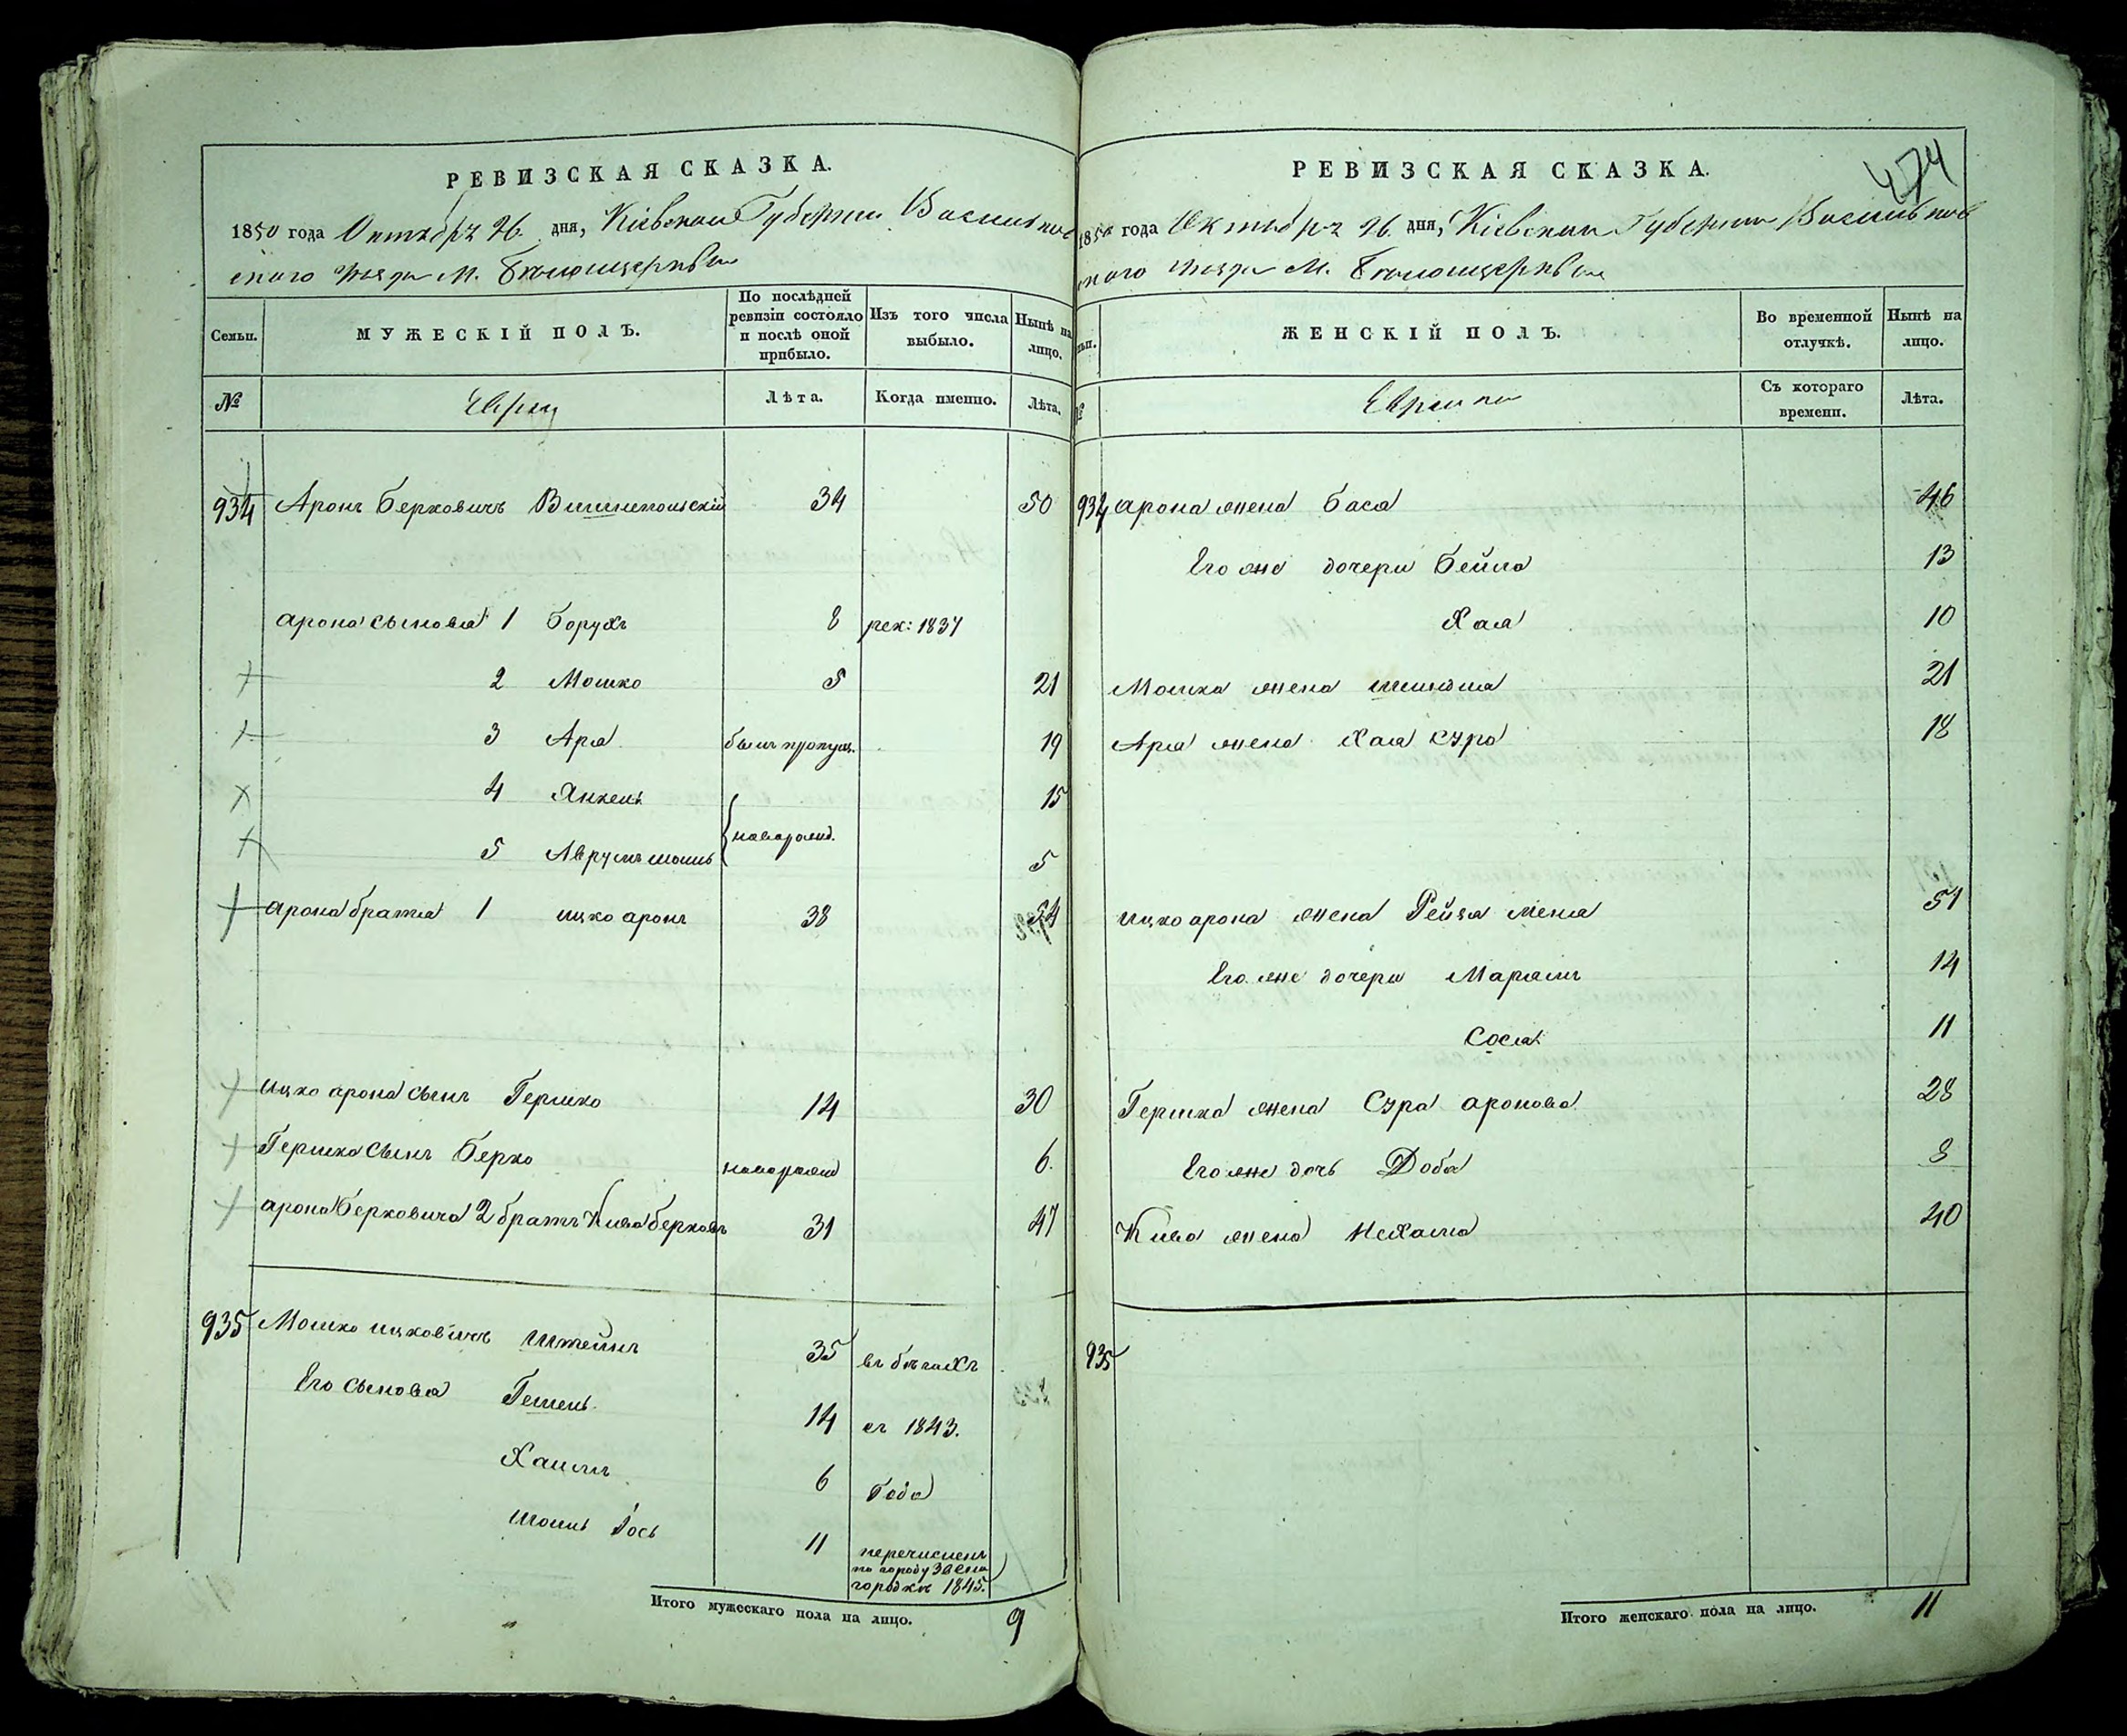 РЕВИЗСКАЯ СКАЗКА.
1850 года Октября 26 дня, Кіевской Губерніи Васильков
скаго уезда м. Белоцерквы
Семьи. МУЖЕСКІЙ ПОЛЪ. По послѣдней ревизіи состояло и послѣ оной прибыло. Изъ того числа выбыло. Нынѣ на лицо.
№ Евреи Лѣта. Когда именно. Лѣта.
934 Аронъ Берковичъ 34 50
Арона сыновья 1 Борухъ 8 рек: 1837
2 Мошко 5 21
3 Арья былъ пропущ. 19
4 Янкель 15
новорожд.
5 Аврумъ шоиль 5
Арона братья 1 ицко аронъ 38 54
ицко арона сынъ Гершко 14 30
Гершка сынъ Берко новорожд 6.
арона Берковича 2 братъ Кива берковъ 31 47
935 Мошко ицковичъ Штейнъ 35 въ бѣгахъ
Его сыновья 14 съ 1843.
Хаимъ 6 года
11 перечисленъ
по городу Звени
городкѣ 1845.
Итого мужескаго пола на лицо. 9
474
РЕВИЗСКАЯ СКАЗКА.
1850 года Октября 26 дня, Кіевской Губерніи Васильков
скаго уезда м. Белоцерквы
ЖЕНСКІЙ ПОЛЪ. Во временной отлучкѣ. Нынѣ на лицо.
№ Еврейки Съ котораго времени. Лѣта.
934 Арона жена Бася 46
Его же дочери Бейла 13
Хая 10
Мошка жена 21
Арья жена Хая сура 18
ицко арона жена Рейзя 51
Его же дочери Марьямъ 14
Сося 11
Гершка жена Сура аронова 28
Его же дочь Доба 8
Кива жена Нехама 40
935
Итого женскаго пола на лицо. 11